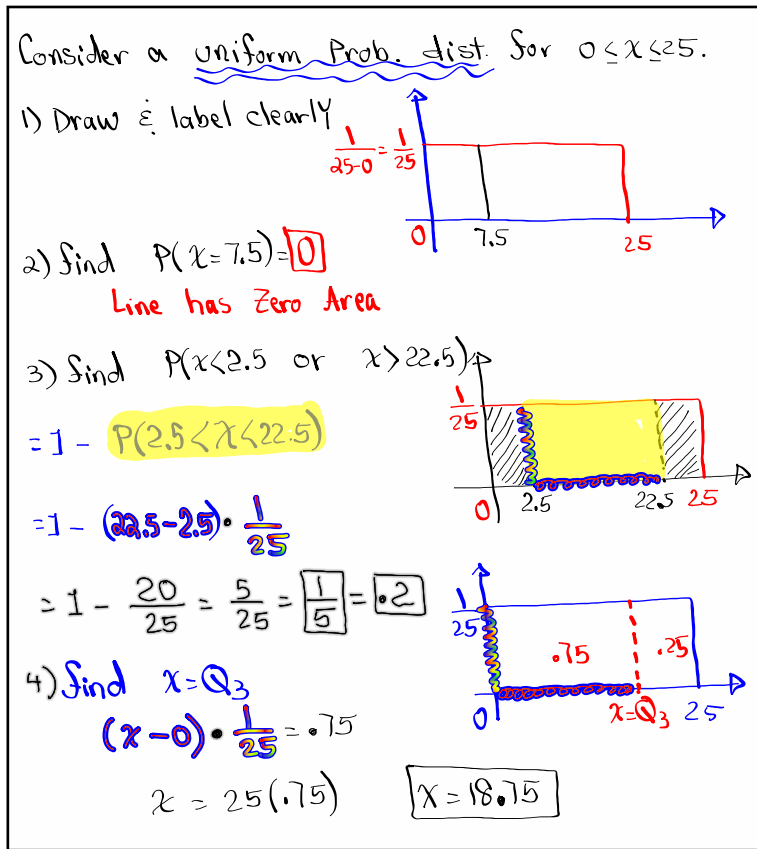 Consider a uniform Prob. dist. for 0 ≤ x ≤ 25.
1) Draw & label clearly
1/(25-0) = 1/25
0 7.5 25
2) find P(x=7.5)= 0
Line has Zero Area
3) find P(x<2.5 or x>22.5)
1/25
= 1 - P(2.5<x<22.5)
0 2.5 22.5 25
= 1 - (22.5-2.5) • 1/25
= 1 - 20/25 = 5/25 = 1/5 = .2
1/25
.75 .25
0 x=Q₃ 25
4) find x=Q₃
(x-0) • 1/25 = .75
x = 25(.75) x=18.75